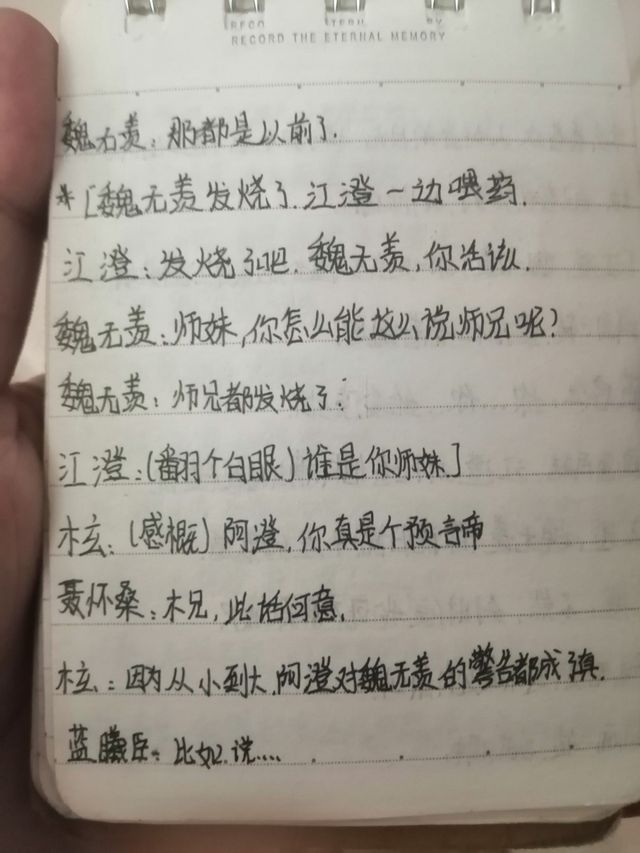 RECORD THE ETERNAL MEMORY
魏无羡：那都是以前了.
*［魏无羡发烧了.江澄一边喂药.
江澄：发烧了吧.魏无羡,你活该.
魏无羡：师妹,你怎么能这么说师兄呢?
魏无羡：师兄都发烧了.
江澄：(翻个白眼)谁是你师妹.］
木玄：(感概)阿澄,你真是个预言帝
聂怀桑：木兄,此话何意.
木玄：因为从小到大,阿澄对魏无羡的警告都成了真.
蓝曦臣：比如.说....